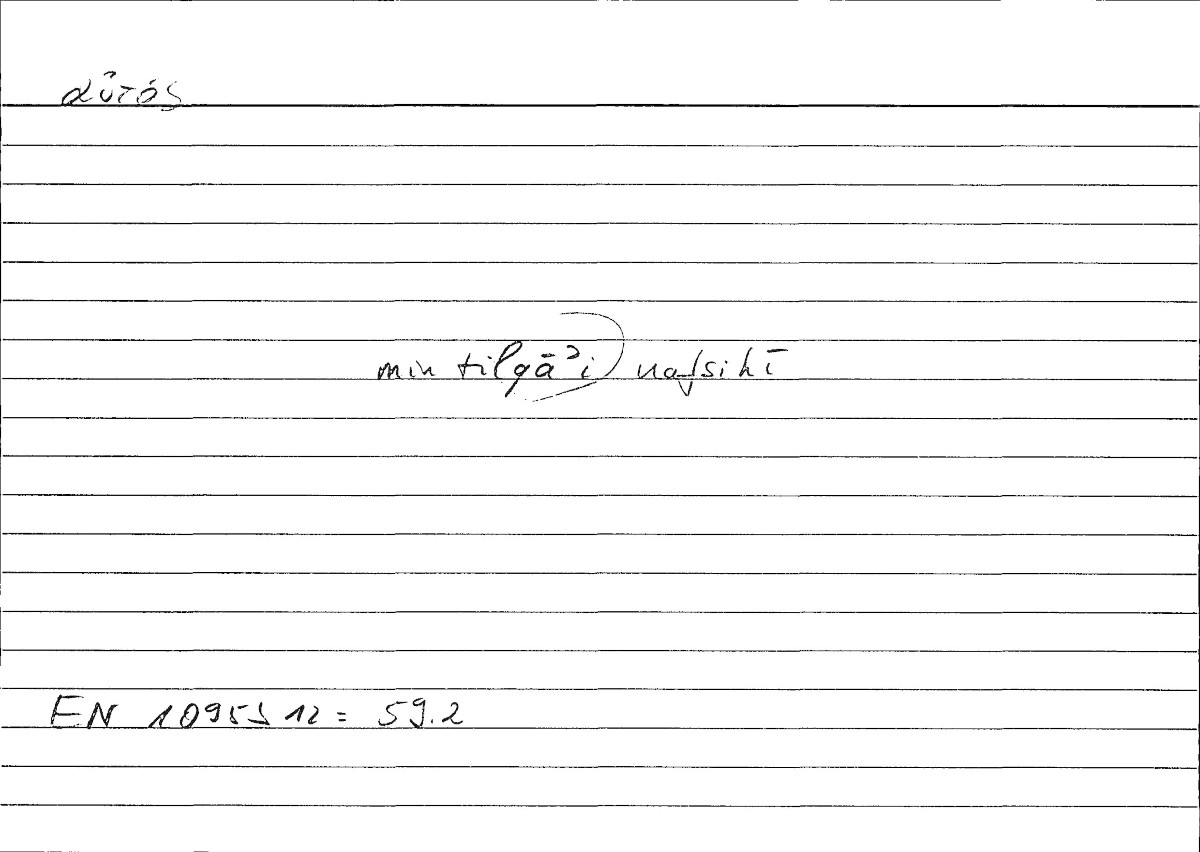 αὐτός
min tilqāʾi nafsihī
EN 1095b12 = 59.2